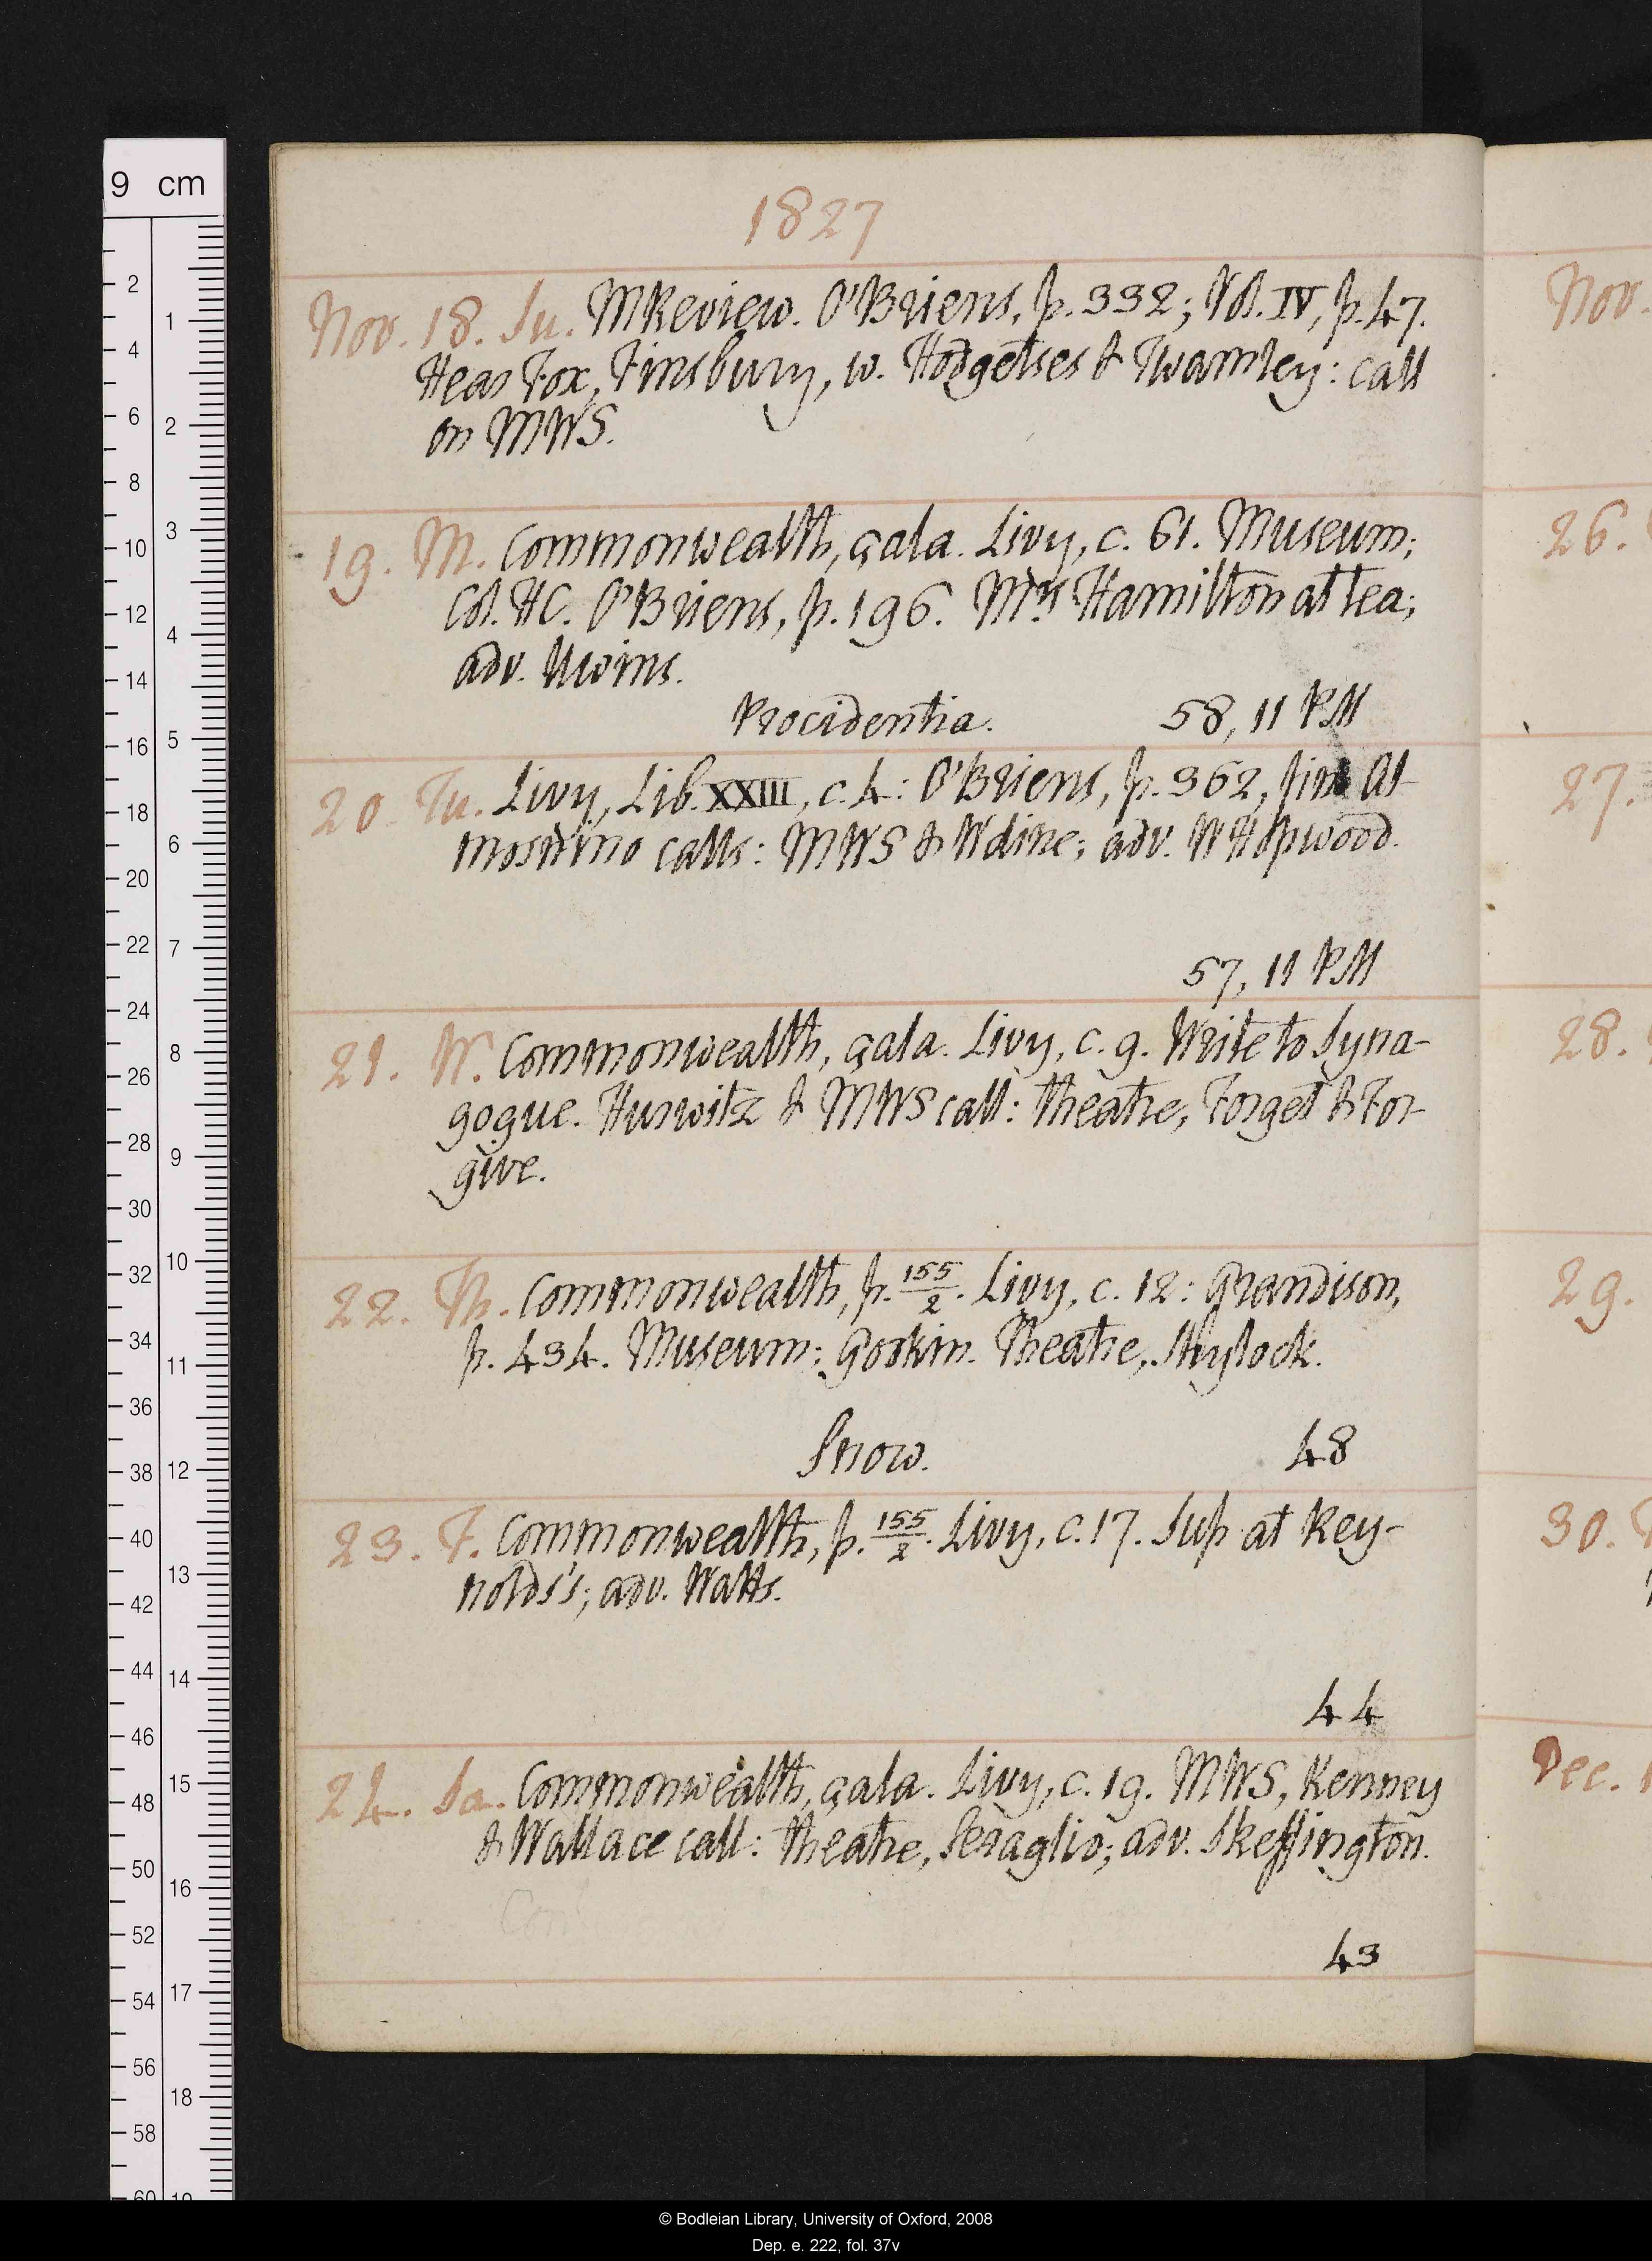 1827
Nov. 18. Su. MReview. O'Briens, p. 332; Vol. IV, p. 47.
Hear Fox, Finsbury, w. Hodgetses & Twamley: call
on MWS.
19. M. Commonwealth, çala. Livy, c. 61. Museum;
Col. HC. O'Briens, p. 196. Mrs Hamilton at tea;
adv. Uwins.
Procidentia. 58, 11 PM
20. Tu. Livy, Lib. XXIII, c. 4: O'Briens, p. 362, fin. At
mosnino calls: MWS & W dine; adv. W Hopwood.
57, 11 PM
21. W. Commonwealth, çala. Livy, c. 9. Write to Syna-
gogue. Hurwitz & MWS call: theatre, Forget & For-
give.
22. Th. Commonwealth, p. 155/2. Livy, c. 12: Grandison,
p. 434. Museum; Godkin. Theatre, Shylock.
Snow. 48
23. F. Commonwealth, p. 155/2. Livy, c. 17. Sup at Rey-
nolds's; adv. Watts.
44
24. Sa. Commonwealth, çala. Livy, c. 19. MWS, Kenney
& Wallace call: theatre, Seraglio; adv. Skeffington.
43
Nov.
26.
27.
28.
29.
30.
Dec.
9 cm
© Bodleian Library, University of Oxford, 2008
Dep. e. 222, fol. 37v